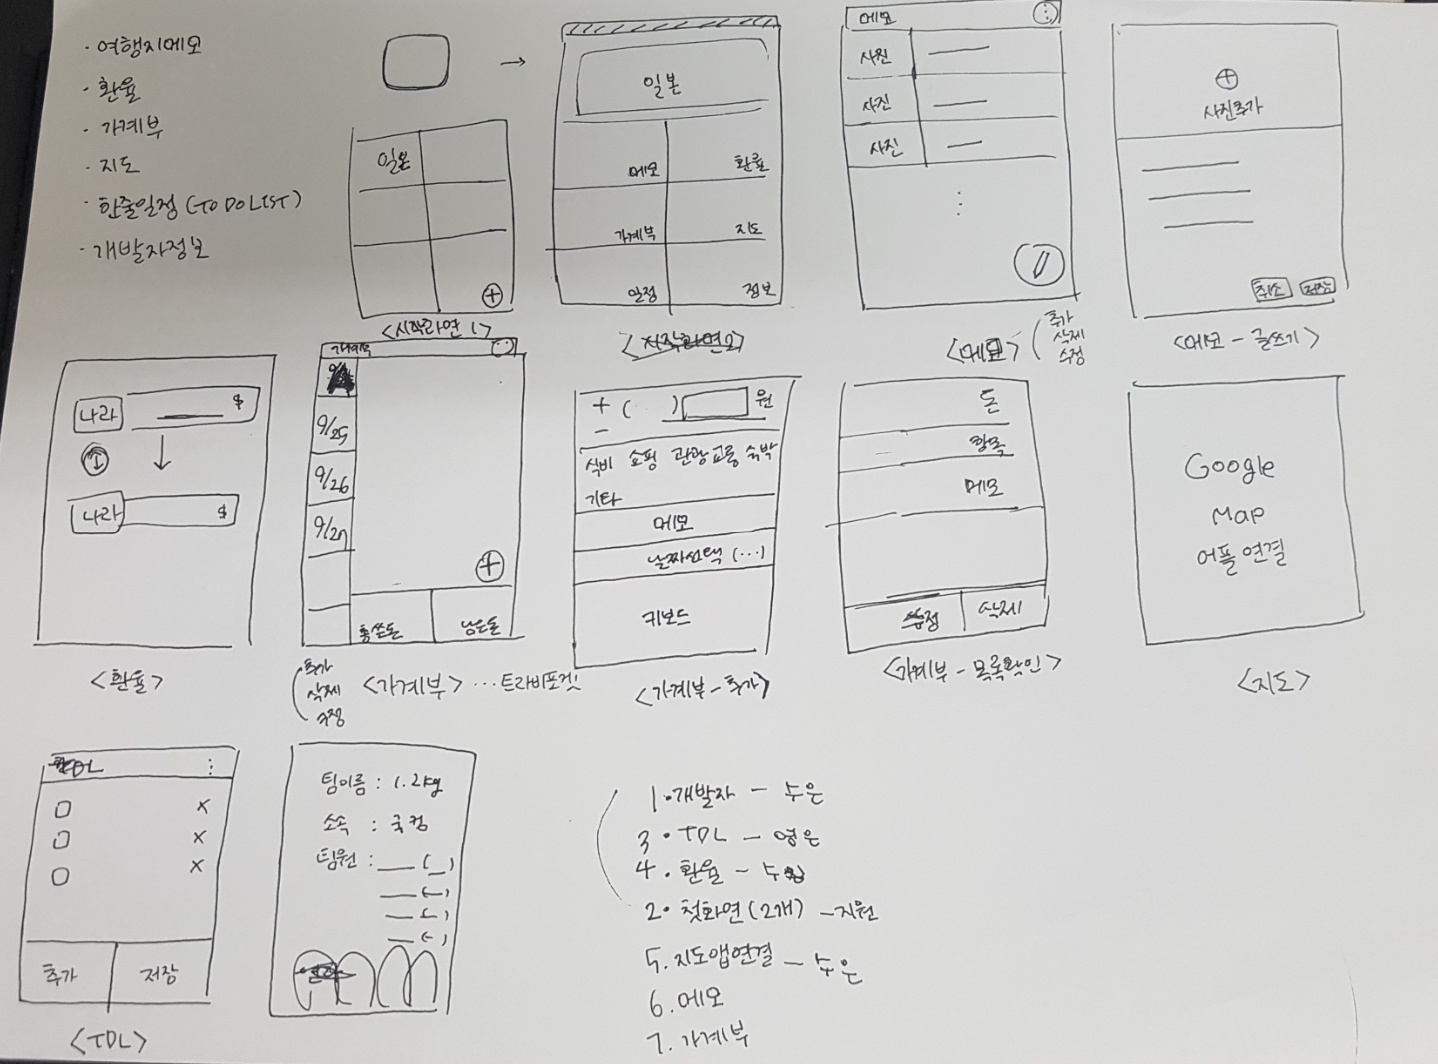 · 여행지메모
· 환율
· 가계부
· 지도
· 한줄일정 (TO DO LIST)
· 개발자정보
→
일본
+
<시작화면 1>
일본
메모 환율
가계부 지도
일정 정보
<시작화면2>
메모
사진
사진
사진
<메모>
추가
삭제
수정
+
사진추가
취소 저장
<메모 - 글쓰기>
나라 $
↓
나라 $
<환율>
가계부
9/25
9/26
9/27
+
총쓴돈 남은돈
추가
삭제
수정
<가계부> ... 트라비포켓
+ ( ) 원
-
식비 쇼핑 관광 교통 숙박
기타
메모
날짜선택 (...)
키보드
<가계부 - 추가>
돈
항목
메모
수정 삭제
<가계부 - 목록확인>
Google
Map
어플연결
<지도>
TDL
X
X
X
추가 저장
<TDL>
팀이름 :
소속 : 국컴
팀원 : __ (_)
__ (_)
__ (_)
__ (_)
1. 개발자 - 수은
3. TDL - 영은
4. 환율 -
2. 첫화면 (2개) - 지원
5. 지도앱연결 - 수은
6. 메모
7. 가계부